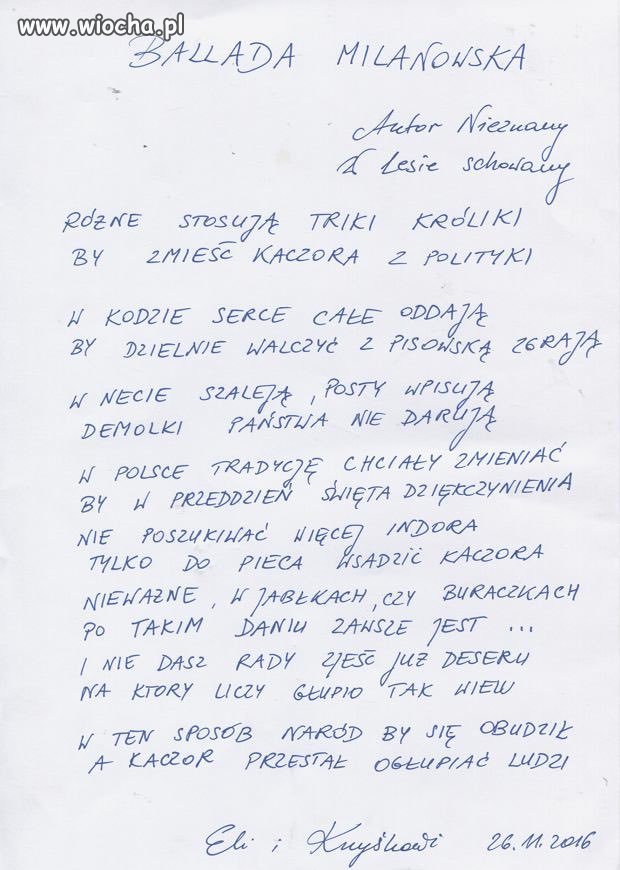 www.wiocha.pl
BALLADA MILANOWSKA
Autor Nieznany
W Lesie schowany
RÓŻNE STOSUJĄ TRIKI KRÓLIKI
BY ZMIEŚĆ KACZORA Z POLITYKI
W KODZIE SERCE CAŁE ODDAJĄ
BY DZIELNIE WALCZYĆ Z PISOWSKĄ ZGRAJĄ
W NECIE SZALEJĄ, POSTY WPISUJĄ
DEMOLKI PAŃSTWA NIE DARUJĄ
W POLSCE TRADYCJĘ CHCIAŁY ZMIENIAĆ
BY W PRZEDDZIEŃ ŚWIĘTA DZIĘKCZYNIENIA
NIE POSZUKIWAĆ WIĘCEJ INDORA
TYLKO DO PIECA WSADZIĆ KACZORA
NIEWAŻNE, W JABŁKACH, CZY BURACZKACH
PO TAKIM DANIU ZAWSZE JEST ...
I NIE DASZ RADY ZJEŚĆ JUŻ DESERU
NA KTORY LICZY GŁUPIO TAK WIELU
W TEN SPOSÓB NARÓD BY SIĘ OBUDZIŁ
A KACZOR PRZESTAŁ OGŁUPIAĆ LUDZI
Eli i Krzyśkowi 26.11.2016